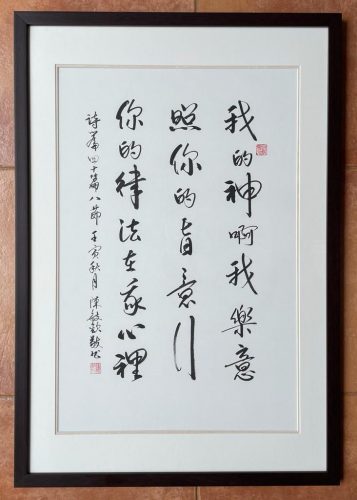 我的神啊我樂意
照你的旨意行
你的律法在我心裡
诗篇四十篇八節 壬寅秋月 陳敏欽敬书